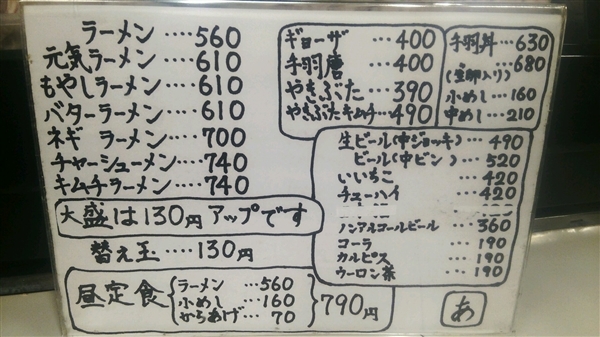 ラーメン……560
元気ラーメン……610
もやしラーメン……610
バターラーメン……610
ネギ ラーメン……700
チャーシューメン……740
キムチラーメン……740
大盛は130円アップです
替え玉……130円
昼定食
ラーメン…560
小めし…160
からあげ…70
790円
ギョーザ…400
手羽唐…400
やきぶた…390
やきぶたキムチ…490
手羽丼…630
(玉卵入り)…680
小めし…160
中めし…210
生ビール(中ジョッキ)…490
ビール(中ビン)…520
いいちこ…420
チューハイ…420
ノンアルコールビール…360
コーラ…190
カルピス…190
ウーロン茶…190
あ